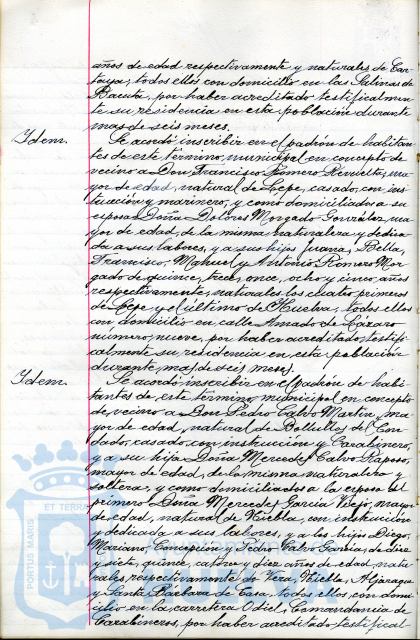 años de edad respectivamente y naturales de Car-
taya; todos ellos con domicilio en las Salinas de
Bacuta, por haber acreditado testificalmen-
te su residencia en esta población durante
mas de seis meses.
Idem.
Se acordó inscribir en el padrón de habitan-
tes de este término municipal en concepto de
vecino a Don Francisco Romero Renvielta, ma-
yor de edad, natural de Lepe, casado, con ins-
trucción y marinero, y como domiciliados a su
esposa Doña Dolores Morgado González, ma-
yor de edad, de la misma naturaleza y dedica-
da a sus labores, y a sus hijos Juana, Bella,
Francisco, Manuel y Antonio Romero Mor-
gado de quince, trece, once, ocho y cinco años
respectivamente, naturales los cuatro primeros
de Lepe y el último de Huelva; todos ellos
con domicilio en calle Amado de Lázaro
número nueve, por haber acreditado testifi-
calmente su residencia en esta población
durante mas de seis meses.
Idem.
Se acordó inscribir en el padrón de habi-
tantes de este término municipal en concepto
de vecino a Don Pedro Calvo Martín, ma-
yor de edad, natural de Bollullos del Con-
dado, casado, con instrucción y Carabinero,
y a su hija Doña Mercedes Calvo Raposo,
mayor de edad, de la misma naturaleza y
soltera, y como domiciliados a la esposa del
primero Doña Mercedes García Viejo, mayor
de edad, natural de Niebla, con instrucción
y dedicada a sus labores, y a los hijos Diego,
Mariano, Concepción y Pedro Calvo García, de diez
y siete, quince, catorce y diez años de edad, natu-
rales respectivamente de Vera, Niebla, Aljaraque
y Santa Bárbara de Casa, todos ellos con domi-
cilio en la carretera Odiel, Comandancia de
Carabineros, por haber acreditado testifical-
PORTUS MARIS
ET TERRA